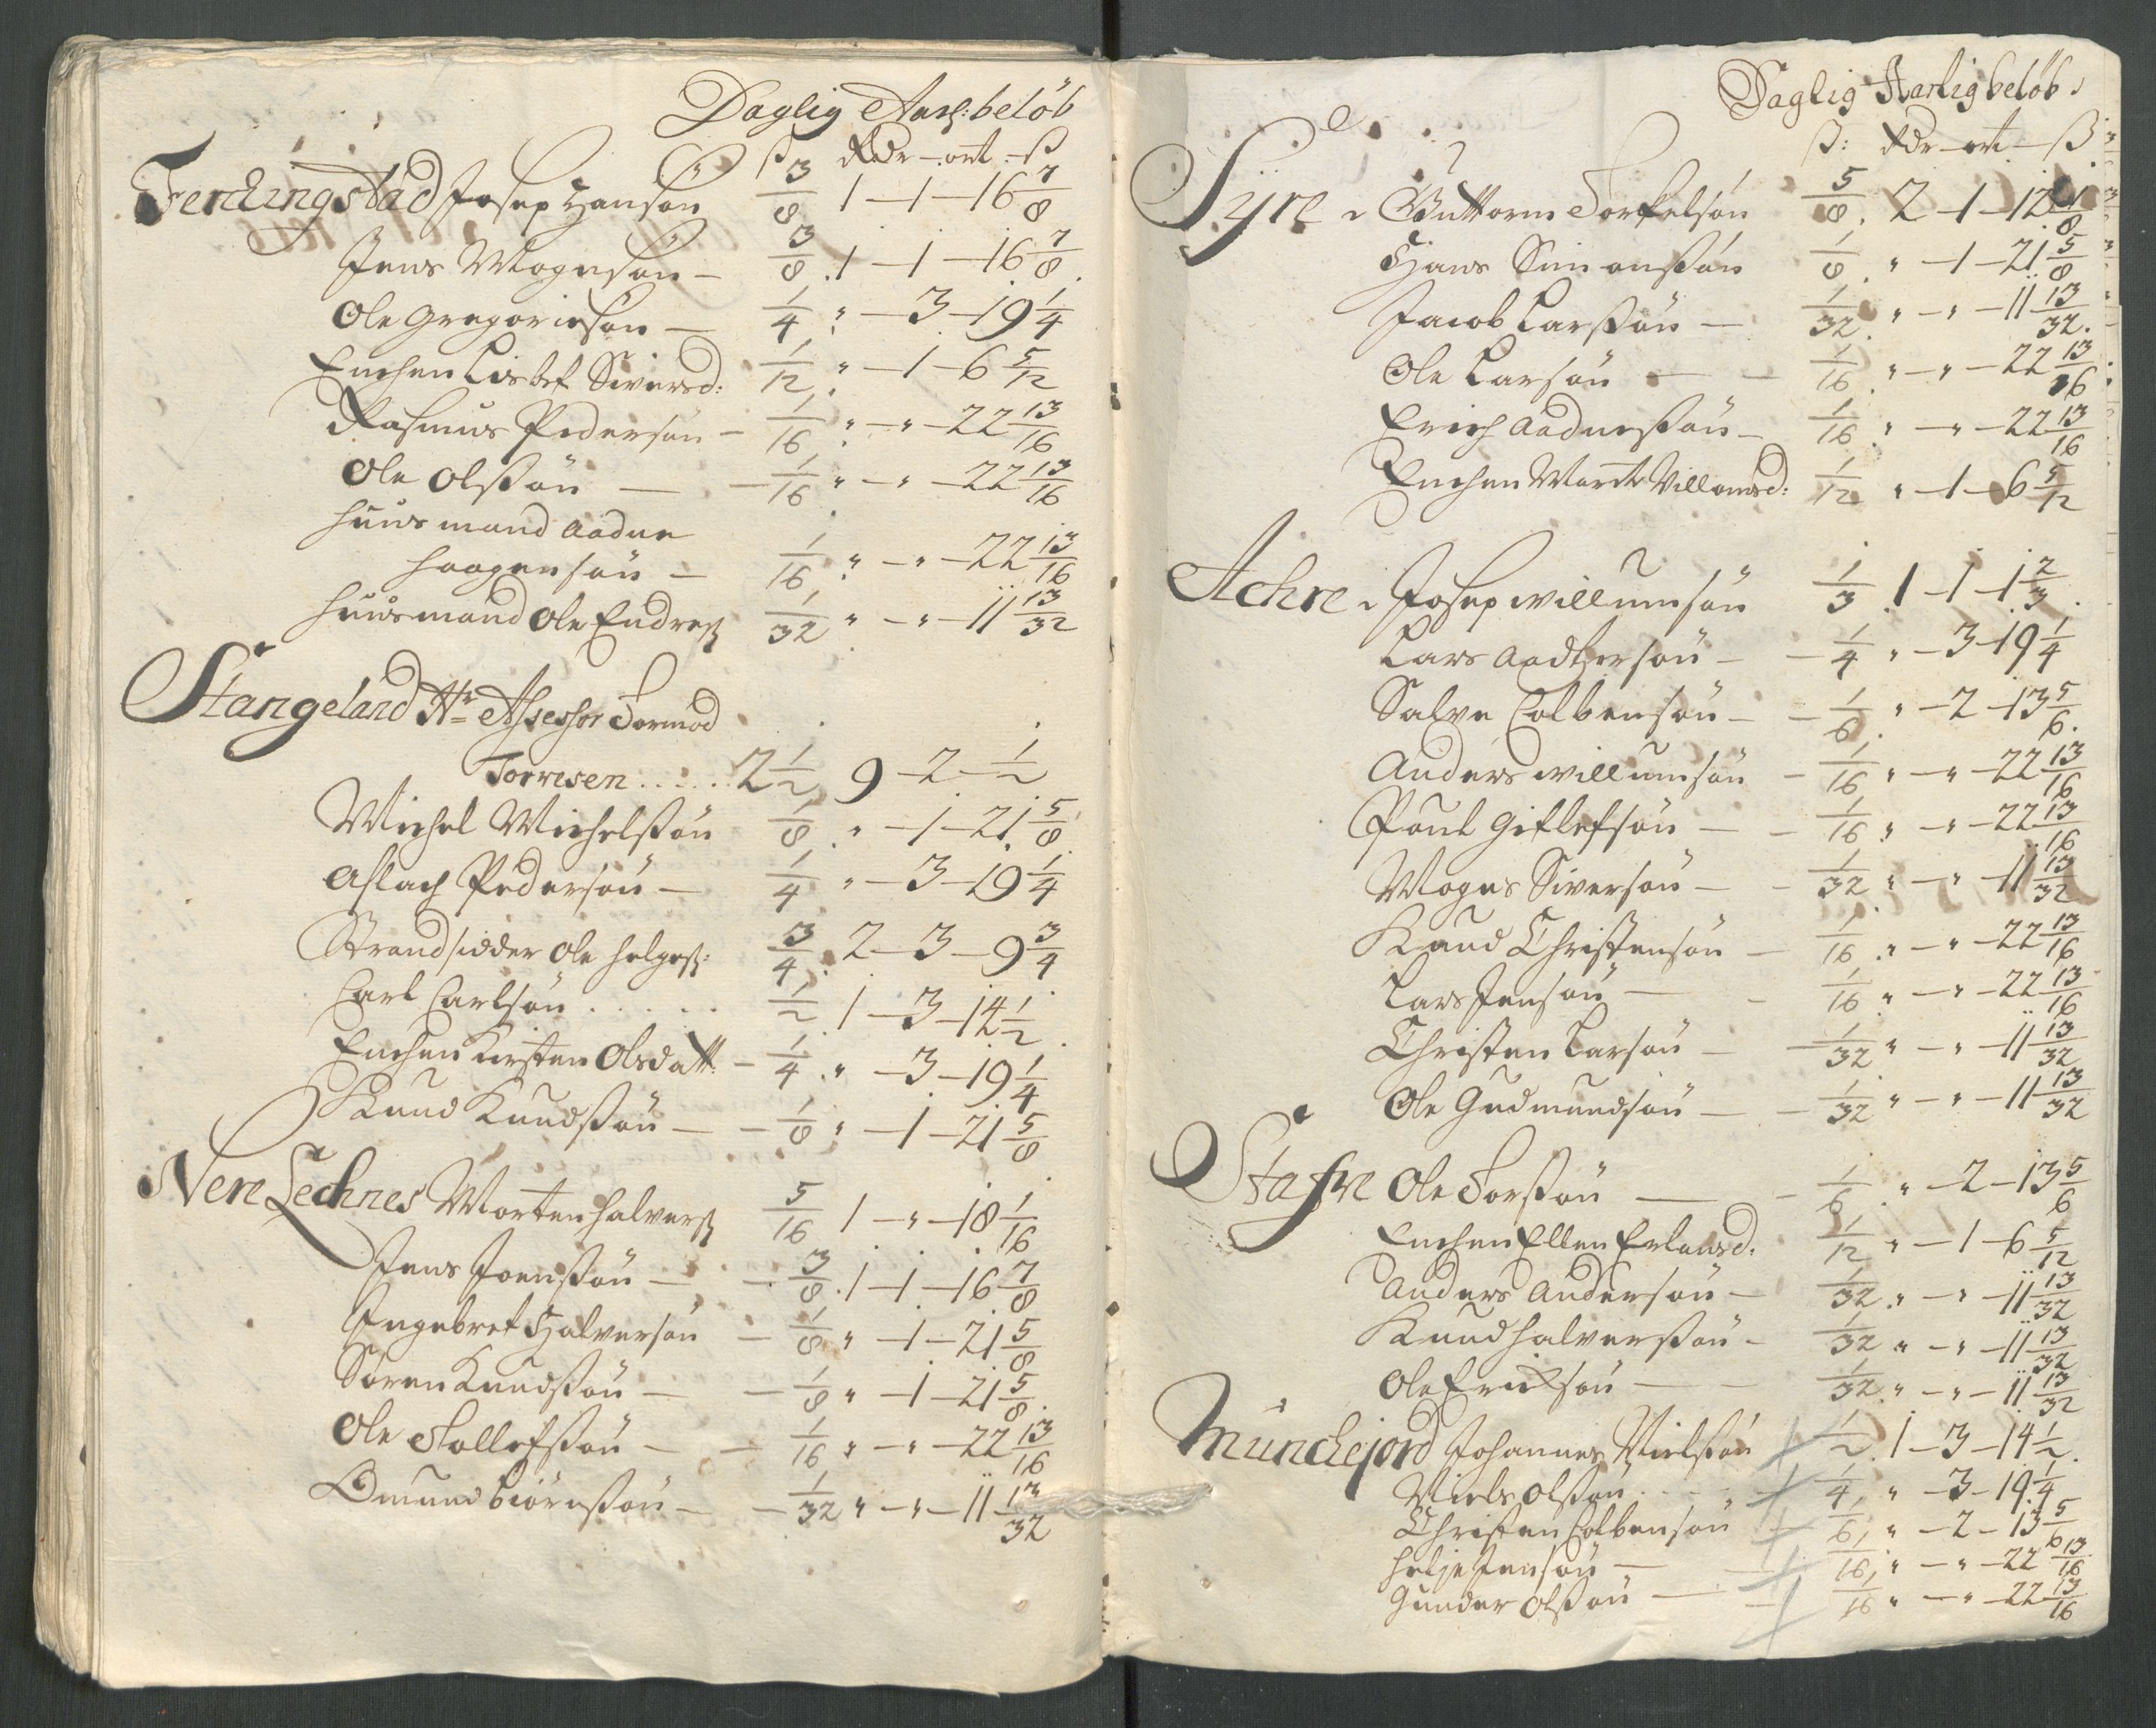 Daglig Aarl: beløb
ß Rdr — ort — ß
Ferchingstad Josep Hansøn 3/8 1 — 1 — 16 7/8
Jens Mogensøn — 3/8 1 — 1 — 16 7/8
Ole Gregoriesøn — 1/4 " — 3 — 19 1/4
Enchen Lisbet Siversd: 1/12 " — 1 — 6 5/12
Rasmus Pedersøn — 1/16 " — " — 22 13/16
Ole Olssøn — 1/16 " — " — 22 13/16
huusmand Aadne
haagensøn — 1/16 " — " — 22 13/16
huusmand Ole Endreß 1/32 " — " — 11 13/32
Stangeland Hr Assessor Tormod
Torrisen ..... 2 1/2 9 — 2 — 1/2
Michel Michelssøn 1/8 " — 1 — 21 5/8
Aslach Pedersøn — 1/4 " — 3 — 19 1/4
Strandsidder Ole Helgeß: 3/4 2 — 3 — 9 3/4
Carl Carlsøn ..... 1/2 1 — 3 — 14 1/2
Enchen Kirsten Olsdatt: — 1/4 " — 3 — 19 1/4
Knud Knudssøn — 1/8 " — 1 — 21 5/8
Nere Lechnes Morten Halverß 5/16 1 — " — 18 1/16
Jens Joenssøn — 3/8 1 — 1 — 16 7/8
Ingebret Halversøn — 1/8 " — 1 — 21 5/8
Søren Knudssøn — 1/8 " — 1 — 21 5/8
Ole Tollefssøn — 1/16 " — " — 22 13/16
Omund Biørnssøn — 1/32 " — " — 11 13/32
Daglig Aarlig beløb
ß: Rdr — ort — ß
Syre Guttorm Torkelsøn 5/8 2 — 1 — 12 1/8
Hans Simonssøn 1/8 " — 1 — 21 5/8
Jacob Larssøn — 1/32 " — " — 11 13/32
Ole Larsøn — 1/16 " — " — 22 13/16
Erich Aadnessøn — 1/16 " — " — 22 13/16
Enchen Marite Villomsd: 1/12 " — 1 — 6 5/12
Achre Josep Willumsøn 1/3 1 — 1 — 1 2/3
Lars Aadtersøn — 1/4 " — 3 — 19 1/4
Salve Colbensøn — 1/6 " — 2 — 13 5/6
Anders Willumsøn — 1/16 " — " — 22 13/16
Poul Gitlefsøn — 1/16 " — " — 22 13/16
Mogns Siversøn — 1/32 " — " — 11 13/32
Knud Christensøn — 1/16 " — " — 22 13/16
Lars Jensøn — 1/16 " — " — 22 13/16
Christen Larsøn — 1/32 " — " — 11 13/32
Ole Gudmundsøn — 1/32 " — " — 11 13/32
Stafre Ole Torssøn — 1/6 " — 2 — 13 5/6
Enchen Ellen Erlansd: 1/12 " — 1 — 6 5/12
Anders Andersøn — 1/32 " — " — 11 13/32
Knud Halverssøn — 1/32 " — " — 11 13/32
Ole Erichsøn — 1/32 " — " — 11 13/32
Munchejord Johannes Nielssøn 1/2 1 — 3 — 14 1/2
Niels Olssøn ... 1/4 " — 3 — 19 1/4
Christen Colbensøn 1/6 " — 2 — 13 5/6
Helje Jensøn — 1/16 " — " — 22 13/16
Gunder Olssøn — 1/16 " — " — 22 13/16